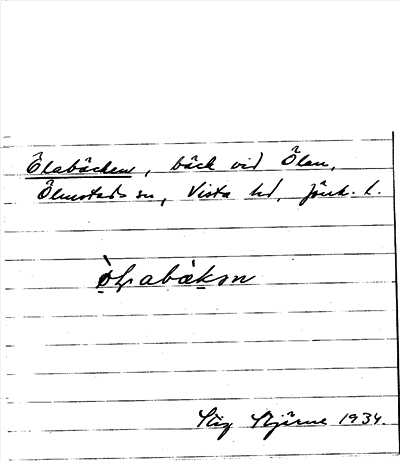 Ölabäcken, bäck vid Ölan,
Ölmstads sn, Vista hd, Jönk. l.
Stig Bjärne 1934.